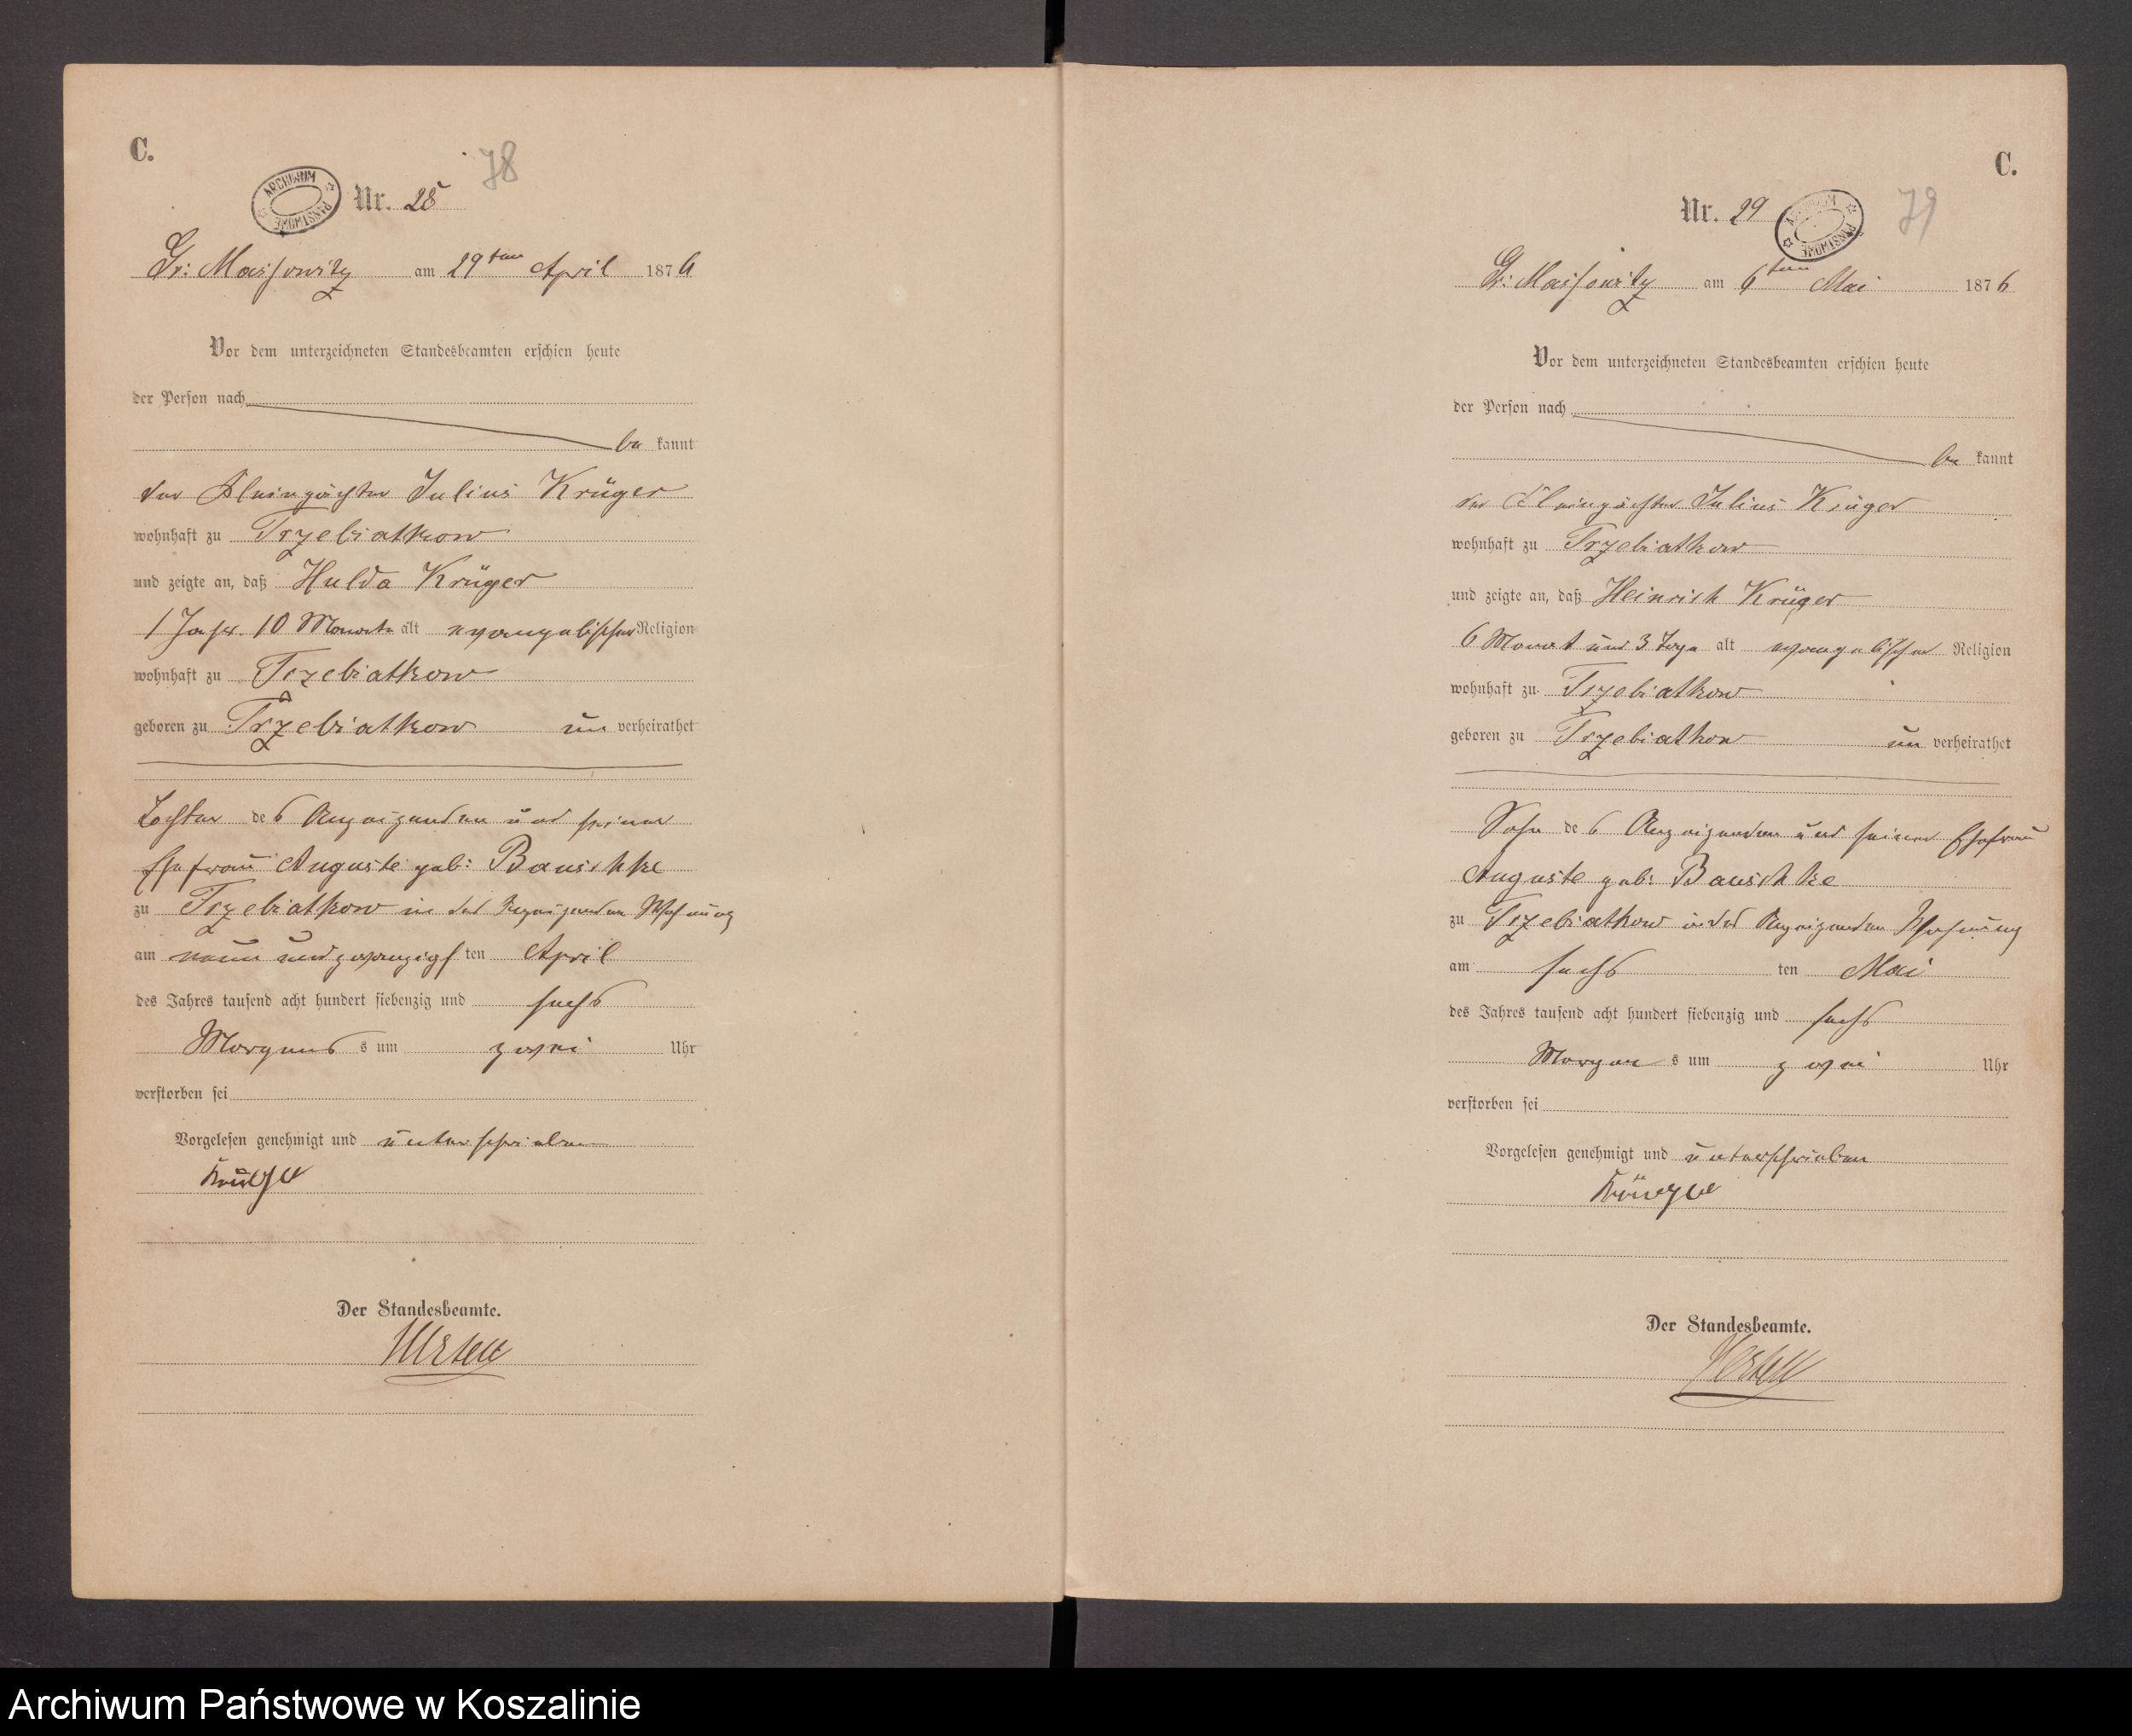 C.
78
ARCHIWUM PAŃSTWOWE
Nr. 28
Gr: Massowitz am 29ten April 1876
Vor dem unterzeichneten Standesbeamten erschien heute
der Person nach
be kannt
der Kleinpächter Julius Krüger
wohnhaft zu Trzebiatkow
und zeigte an, daß Hulda Krüger
1 Jahr 10 Monate alt evangelischer Religion
wohnhaft zu Trzebiatkow
geboren zu Trzebiatkow un verheirathet
Tochter des Anzeigenden und seiner
Ehefrau Auguste geb: Bauschke
zu Trzebiatkow in des Anzeigenden Wohnung
am neun und zwanzigs ten April
des Jahres tausend acht hundert siebenzig und sechs
Morgens s um zwei Uhr
verstorben sei
Vorgelesen genehmigt und unterschrieben
Krüger
Der Standesbeamte.
C.
Nr. 29
ARCHIWUM PAŃSTWOWE
79
Gr: Massowitz am 6ten Mai 1876
Vor dem unterzeichneten Standesbeamten erschien heute
der Person nach
be kannt
der Kleinpächter Julius Krüger
wohnhaft zu Trzebiatkow
und zeigte an, daß Heinrich Krüger
6 Monat und 3 Tage alt evangelischer Religion
wohnhaft zu Trzebiatkow
geboren zu Trzebiatkow un verheirathet
Sohn des Anzeigenden und seiner Ehefrau
Auguste geb: Bauschke
zu Trzebiatkow in des Anzeigenden Wohnung
am sechs ten Mai
des Jahres tausend acht hundert siebenzig und sechs
Morgen s um zwei Uhr
verstorben sei
Vorgelesen genehmigt und unterschrieben
Krüger
Der Standesbeamte.
Archiwum Państwowe w Koszalinie